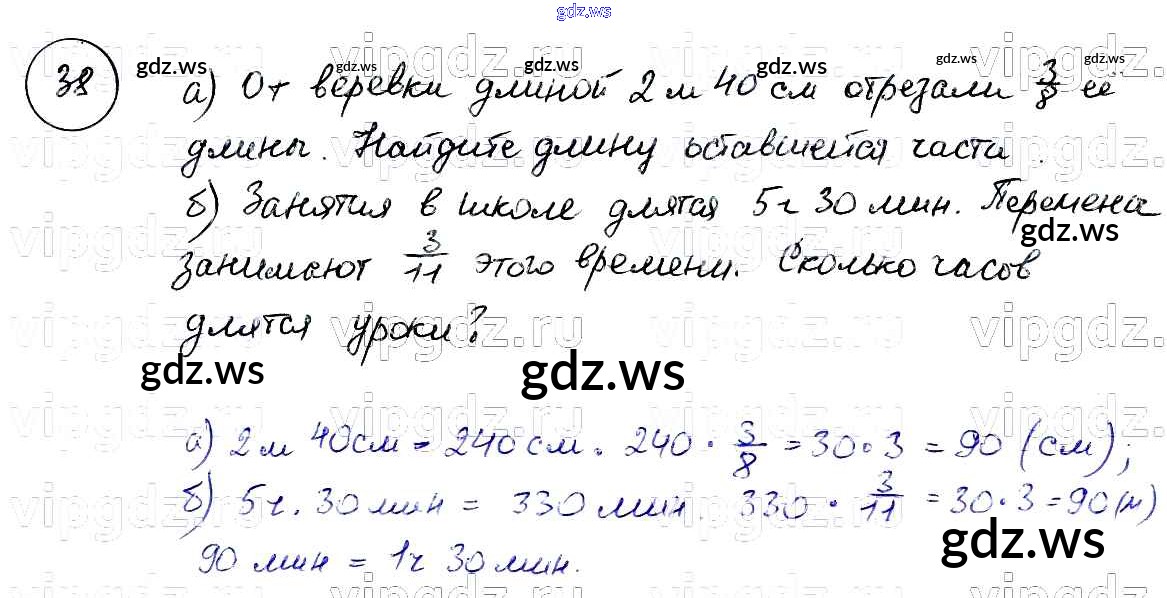 gdz.ws
38
а) От веревки длиной 2 м 40 см отрезали 3/8 её
длины. Найдите длину оставшейся части.
б) Занятия в школе длятся 5 ч 30 мин. Перемена
занимают 3/11 этого времени. Сколько часов
длятся уроки?
gdz.ws
gdz.ws
gdz.ws
gdz.ws
gdz.ws
gdz.ws
gdz.ws
gdz.ws
vipgdz.ru
а) 2 м 40 см = 240 см. 240 · 3/8 = 30 · 3 = 90 (см);
б) 5 ч. 30 мин = 330 мин. 330 · 3/11 = 30 · 3 = 90 (м)
90 мин = 1 ч 30 мин.
gdz.ws